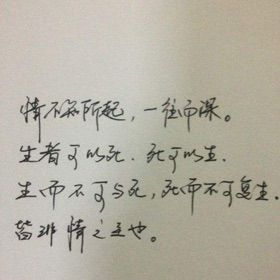 情不知所起，一往而深。
生者可以死．死可以生．
生而不可与死，死而不可复生．
皆非情之至也。